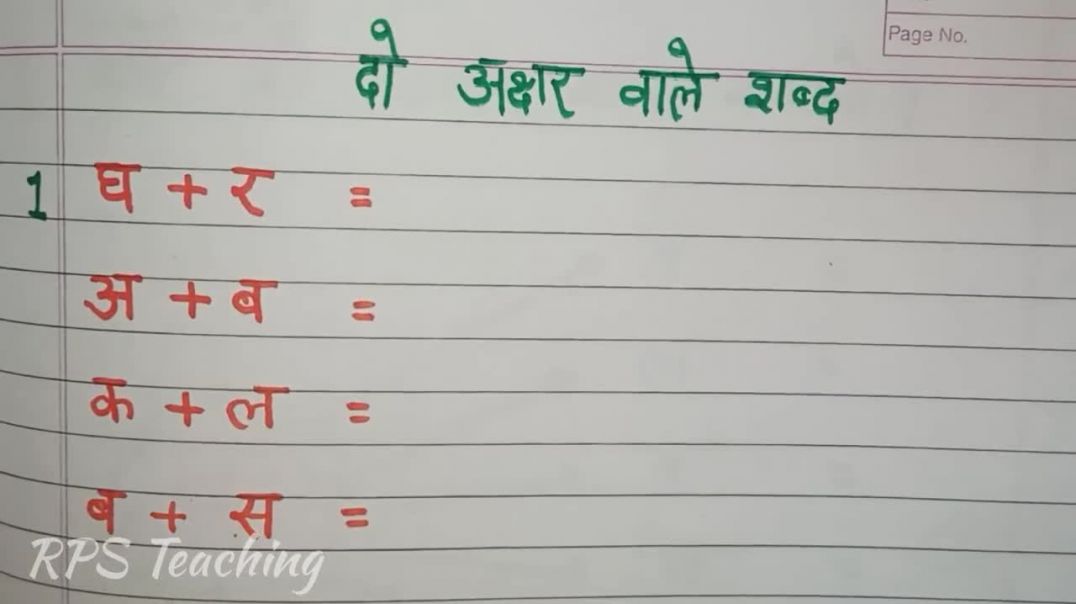 Page No.
दो अक्षर वाले शब्द
1 घ + र =
अ + ब =
क + ल =
ब + स =
RPS Teaching